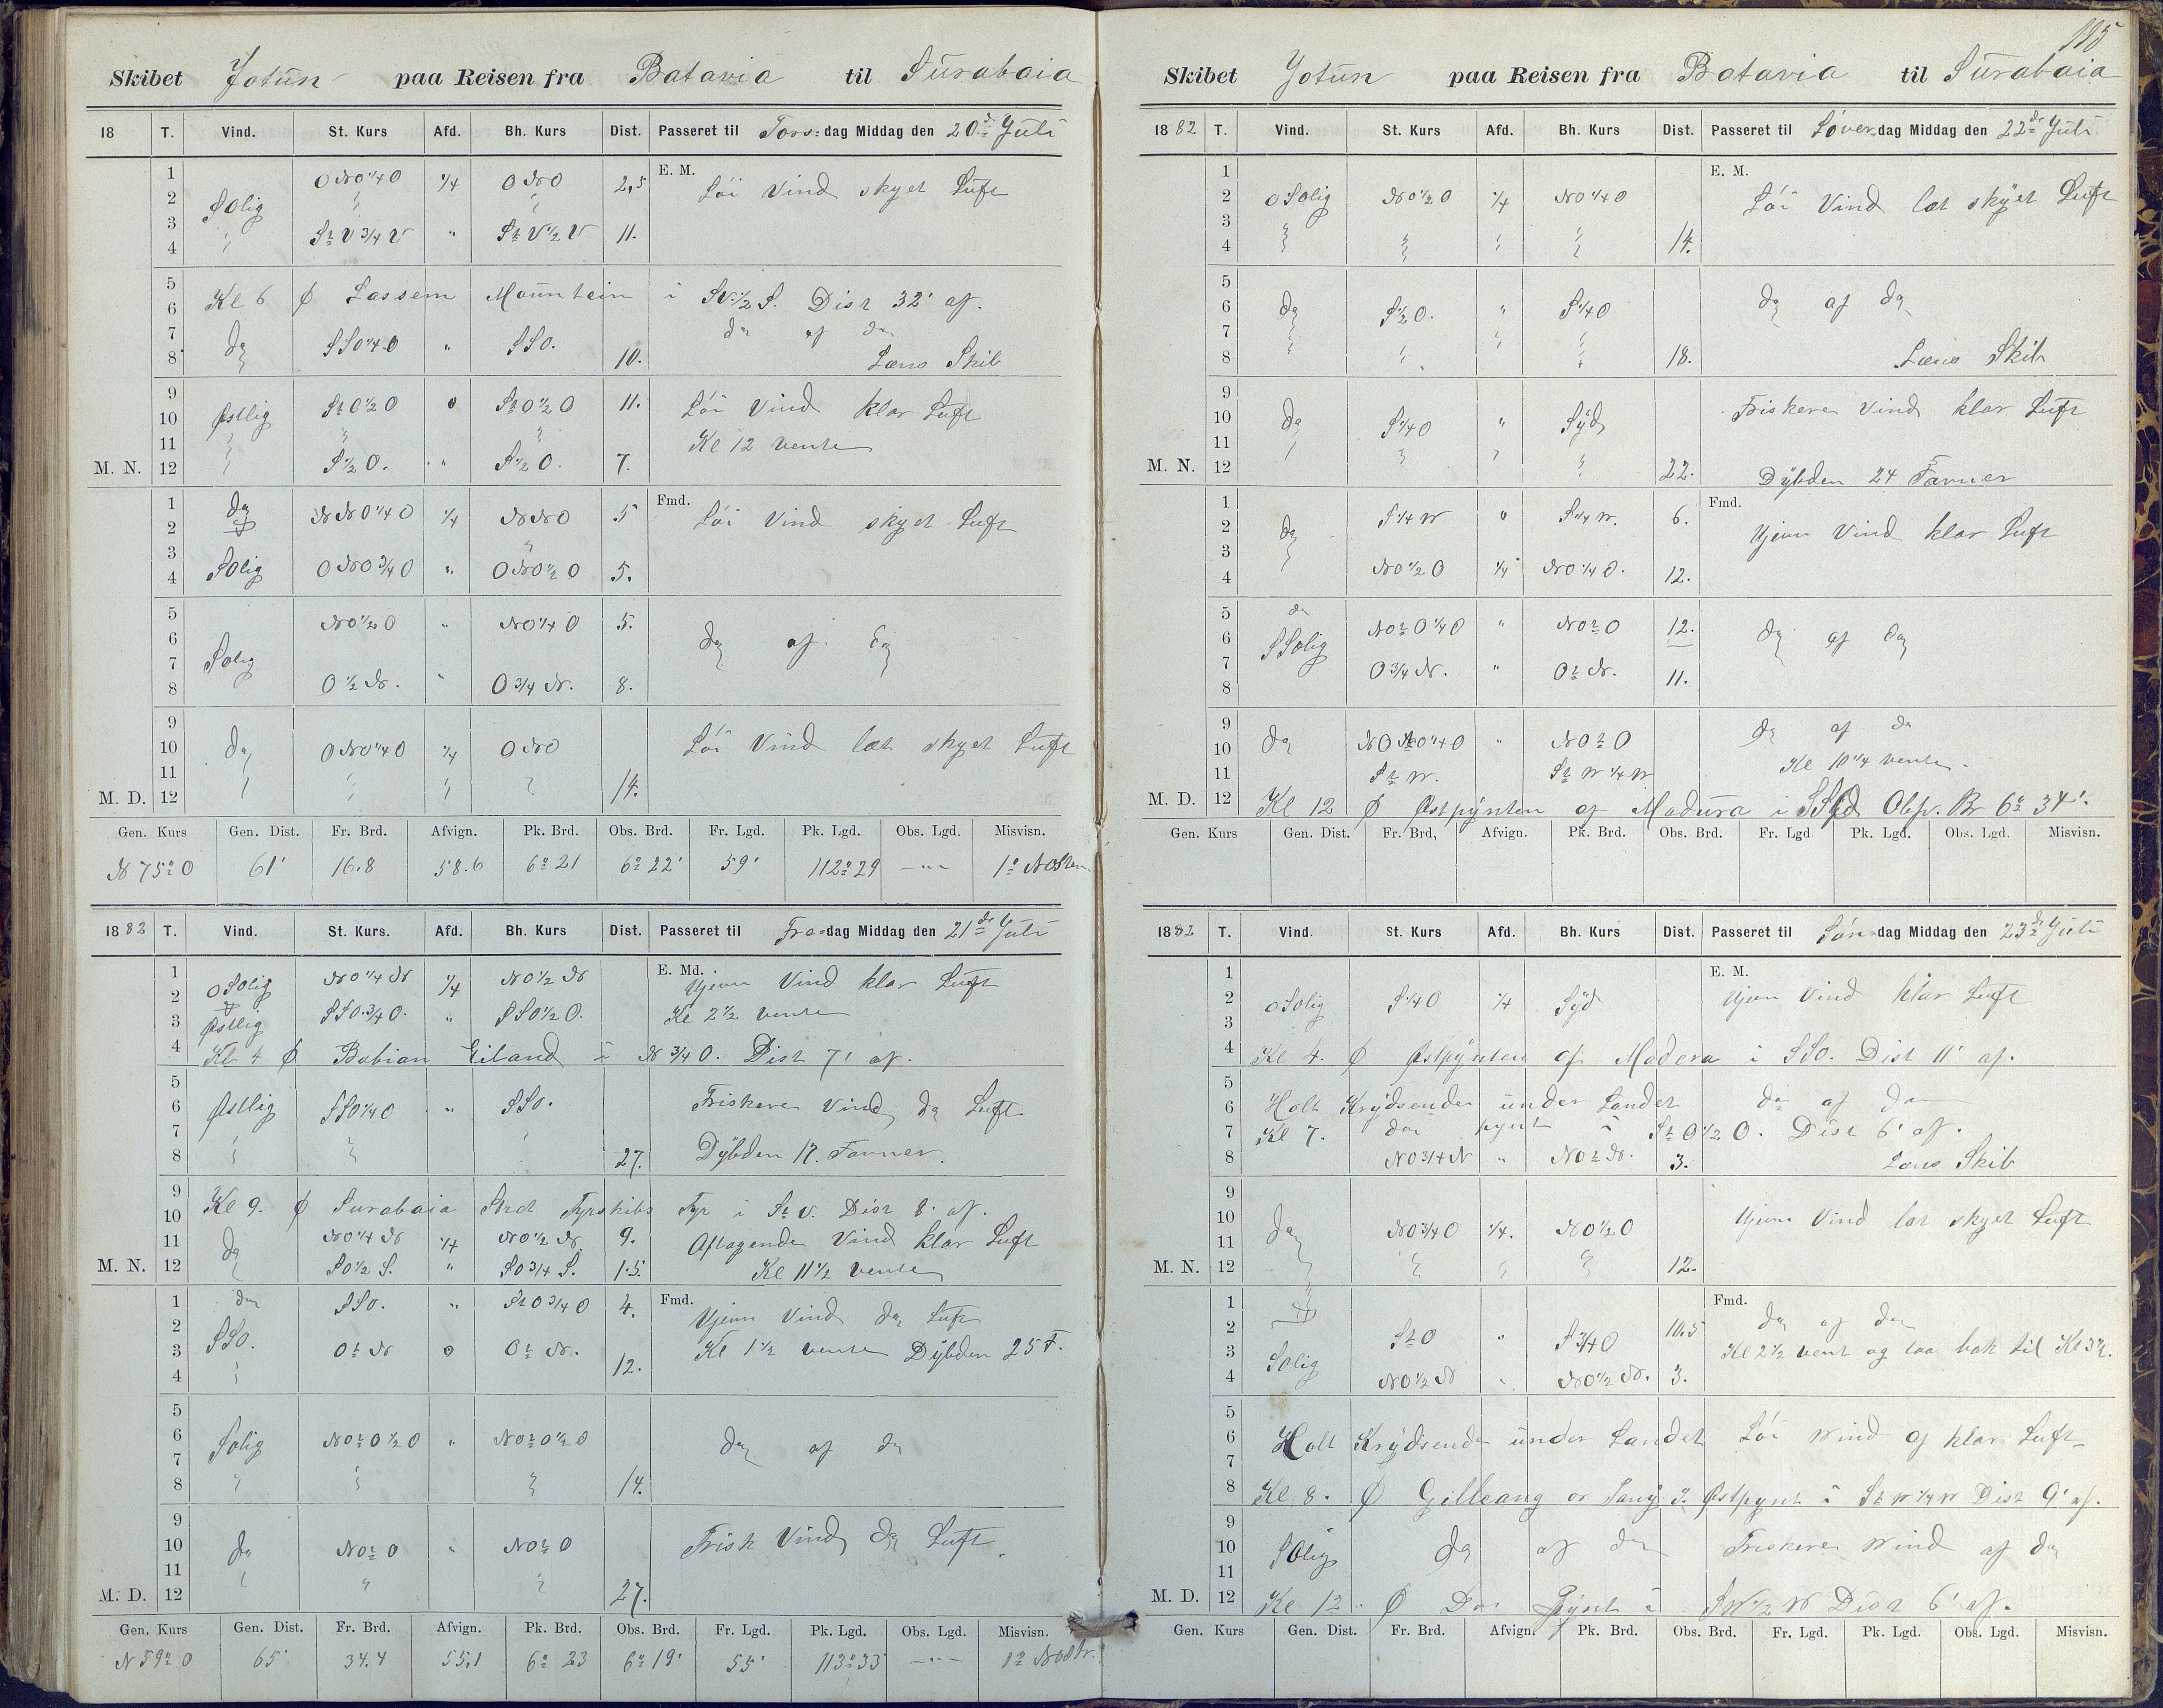 115
Skibet Jotun paa Reisen fra Batavia til Surabaia
18 T. Vind. St. Kurs Afd. Bh. Kurs Dist. Passeret til Tors-dag Middag den 20de Juli
1 ONO 1/4 O 1/4 ONO 2,5 E. M. Löi Vind skyet Luft
2 SOlig
3
4 StV 3/4 V " StV 1/2 V 11.
5
6 Kl 6 Ø Lassem Mountein i SV 1/2 S. Dist 32' af.
7 do SSO 1/4 O " SSO. do af do
8 10. Læns Skib
9 Østlig StO 1/2 O 0 StO 1/2 O 11. Löi Vind klar Luft
10
11 Kl 12 vente
M. N. 12 S 1/2 O. " S 1/2 O. 7.
1 do NNO 1/4 O 1/4 NNO 5 Fmd. Löi Vind skyet Luft
2
3 SOlig ONO 3/4 O " ONO 1/2 O 5.
4
5 NO 1/2 O " NO 1/4 O 5.
6 SOlig do af do
7
8 O 1/2 N. " O 3/4 N. 8.
9
10 do ONO 1/4 O 1/4 ONO Löi Vind let skyet Luft
11
M. D. 12 14.
Gen. Kurs Gen. Dist. Fr. Brd. Afvign. Pk. Brd. Obs. Brd. Fr. Lgd. Pk. Lgd. Obs. Lgd. Misvisn.
N 75° O 61' 16.8 58.6 6° 21 6° 22' 59' 112° 29 — " — 1° NOstr
1882 T. Vind. St. Kurs. Afd. Bh. Kurs Dist. Passeret til Fre-dag Middag den 21de Juli
1 OSOlig NO 1/4 N 1/4 NO 1/2 N E. Md. Ujevn Vind klar Luft
2
3 Østlig SSO 3/4 O. " SSO 1/2 O. Kl 2 1/2 vente
4 Kl 4 Ø Babian Eiland i N 3/4 O. Dist 7' af.
5
6 Østlig SSO 1/4 O " SSO. Friskere Vind do Luft
7
8 27. Dybden 17. Favner.
9 Kl 9. Ø Surabaia Stret Fyrskibs Fyr i StV. Dist 8' af.
10
11 do NO 1/4 N 1/4 NO 1/2 N 9. Aftagende Vind klar Luft
M. N. 12 SO 1/2 S. " SO 3/4 S. 1.5. Kl 11 1/2 vente
1 do SSO. " StO 3/4 O 4. Fmd. Ujevn Vind do Luft
2
3 SSO. OtN 0 OtN. Kl 1 1/2 vente Dybden 25 F.
4 12.
5
6 SOlig NOtO 1/2 O " NOtO 1/2 O do af do
7
8 14.
9
10 do NOtO " NOtO Frisk Vind do Luft
11
M. D. 12 27.
Gen. Kurs Gen. Dist. Fr. Brd. Afvign. Pk. Brd. Obs. Brd. Fr. Lgd. Pk. Lgd. Obs. Lgd. Misvisn.
N 59° O 65' 34.4 55,1 6° 23 6° 19' 55' 113° 33' — " — 1° NOstr.
Skibet Jotun paa Reisen fra Batavia til Surabaia
1882 T. Vind. St. Kurs Afd. Bh. Kurs Dist. Passeret til Löver-dag Middag den 22de Juli
1 E. M.
2 OSOlig NO 1/2 O 1/4 NO 1/4 O Löi Vind let skyet Luft
3
4 14.
5
6 do S 1/2 O. " S 1/4 O do af do
7
8 18. Læns Skib
9
10 do S 1/4 O " Syd Friskere Vind klar Luft
11
M. N. 12 22. Dybden 24 Favner
1 S 1/4 W " S 1/4 W. 6. Fmd.
2 do Ujevn Vind klar Luft
3
4 NO 1/2 O 1/4 NO 1/4 O. 12.
5 do
6 SSOlig NOtO 1/4 O " NOtO 12. do af do
7 O 3/4 N. " OtN. 11.
8
9
10 do NONO 1/4 O " NOtO do af do
11 StW. StW 1/4 W Kl 10 1/4 vente.
M. D. 12 Kl 12 Ø Østpynten af Madura i SSyd Obsv. Br 6° 34'.
Gen. Kurs Gen. Dist. Fr. Brd, Afvign. Pk. Brd. Obs. Brd. Fr. Lgd Pk. Lgd. Obs. Lgd. Misvisn.
1882 T. Vind. St. Kurs Afd. Bh. Kurs Dist. Passeret til Søn-dag Middag den 23de Juli
1 E. M.
2 OSOlig S 1/4 O 1/4 Syd Ujevn Vind klar Luft
3
4 Kl 4. Ø Østpynten af Madera i SSO. Dist 11' af.
5
6 Holt Krydsende under Landet do af do
7 Kl 7. do pynt i StO 1/2 O. Dist 6' af.
8 NO 3/4 N " NOtN. 3. Læns Skib
9
10 do NO 3/4 O 1/4. NO 1/2 O Ujevn Vind let skyet Luft
11
M. N. 12 12.
1 Fmd. do af do
2 StO " S 3/4 O 10.5
3 SOlig Kl 2 1/2 vent og laa bak til Kl 3 1/2.
4 NO 1/2 N " NO 1/2 N. 3.
5
6 Holt Krydsende under Landet Löi Wind og klar Luft
7
8 Kl 8. Ø Gilleang or Østpynt i StW 1/4 W Dist 9' af.
9
10 SOlig do af do Friskere Wind af do
11
M. D. 12 Kl 12. Ø Do Pynt i SW 1/2 W Dist 6' af.
Gen. Kurs Gen. Dist. Fr. Brd. Afvign. Pk. Brd. Obs. Brd. Fr. Lgd. Pk. Lgd. Obs. Lgd. Misvisn.